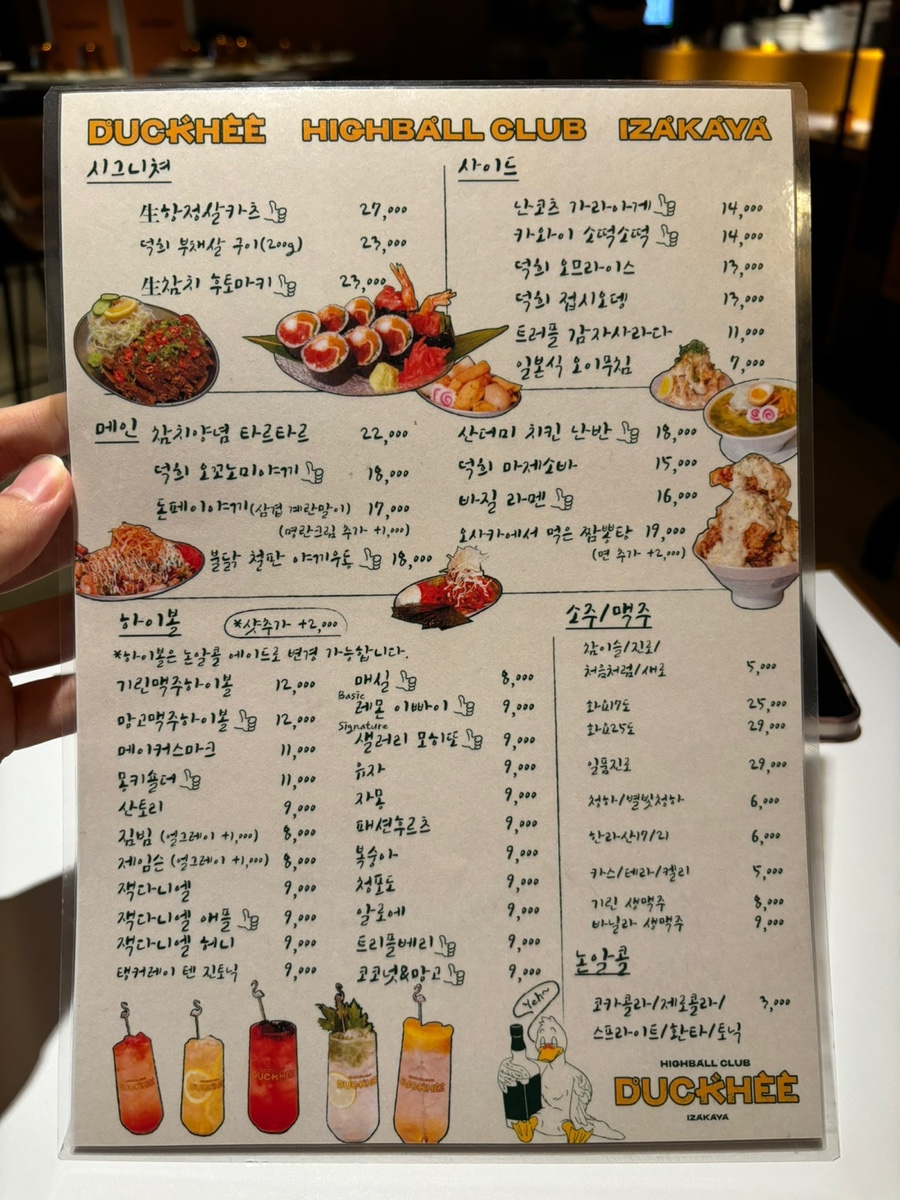 DUCKHEE HIGHBALL CLUB IZAKAYA
시그니쳐
生항정살카츠 27,000
덕희 부채살 구이(200g) 23,000
生참치 후토마키 23,000
사이드
난코츠 가라아게 14,000
카와이 소떡소떡 14,000
덕희 오므라이스 13,000
덕희 접시오뎅 13,000
트러플 감자사라다 11,000
일본식 오이무침 7,000
메인
참치양념 타르타르 22,000
덕희 오꼬노미야끼 18,000
돈페이야끼(삼겹 계란말이) 17,000
(명란크림 추가 +1,000)
불닭 철판 야끼우동 18,000
산더미 치킨 난반 18,000
덕희 마제소바 15,000
바질 라멘 16,000
오사카에서 먹은 짬뽕탕 19,000
(면 추가 +2,000)
하이볼 *샷추가 +2,000
*하이볼은 논알콜 에이드로 변경 가능합니다.
기린맥주하이볼 12,000
망고맥주하이볼 12,000
메이커스마크 11,000
몽키숄더 11,000
산토리 9,000
짐빔 (얼그레이 +1,000) 8,000
제임슨 (얼그레이 +1,000) 8,000
잭다니엘 9,000
잭다니엘 애플 9,000
잭다니엘 허니 9,000
탱커레이 텐 진토닉 9,000
매실 8,000
Basic
레몬 이빠이 9,000
Signature
샐러리 모히또 9,000
유자 9,000
자몽 9,000
패션후르츠 9,000
복숭아 9,000
청포도 9,000
알로에 9,000
트리플베리 9,000
코코넛&망고 9,000
소주/맥주
참이슬/진로/
처음처럼/새로 5,000
화요17도 25,000
화요25도 29,000
일품진로 29,000
청하/별빛청하 6,000
한라산17/21 6,000
카스/테라/켈리 5,000
기린 생맥주 8,000
바닐라 생맥주 9,000
논알콜
코카콜라/제로콜라/ 3,000
스프라이트/환타/토닉
Yeh~
DUCKHEE
DUCKHEE
DUCKHEE
DUCKHEE
DUCKHEE
HIGHBALL CLUB
DUCKHEE
IZAKAYA